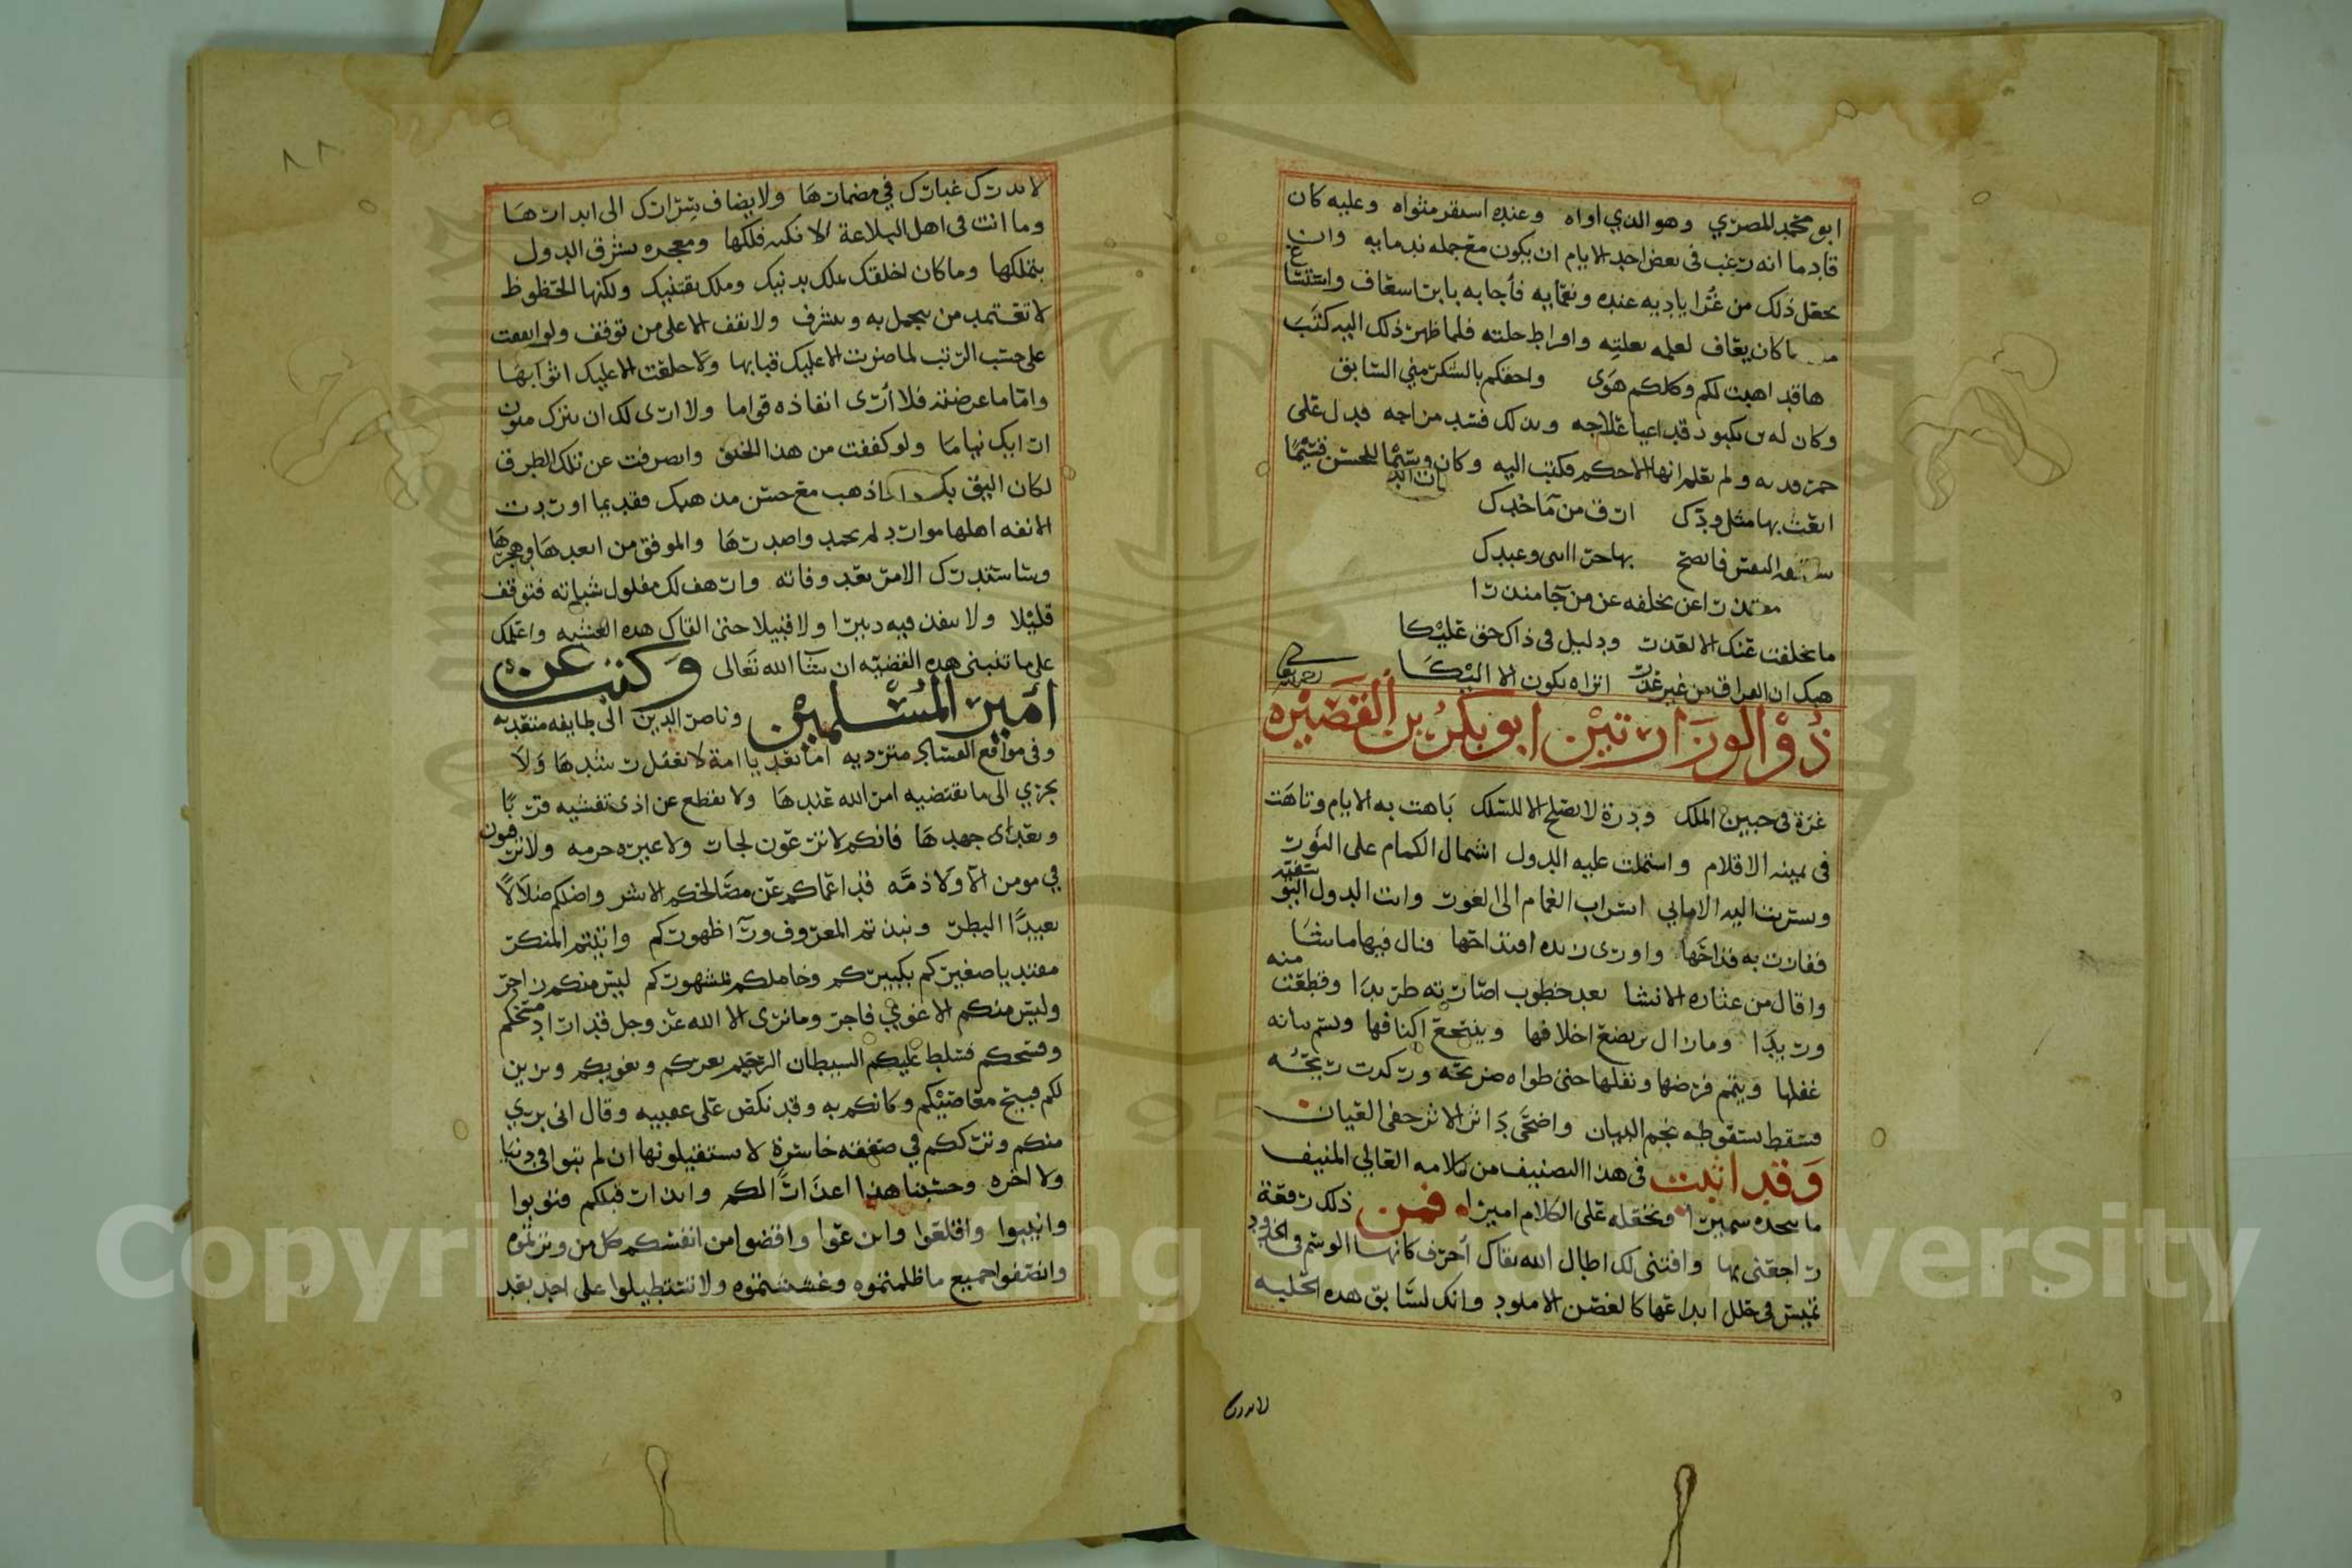 ابو محمد المصري وهو الذي اواه وعنده استقر مثواه وعليه كان
قادما انه رغب في بعض احد الايام ان يكون مع جمله ندمايه وان
يعقل ذلك من غرا ياديه عنده ونعمايه فأجابه بابر اسعاف واستنشا
ما كان يعاف لعلمه بعلته وافراط حلته فلما ظهر ذلك اليه كتب
هاقد اهبت لكم وكلكم هوى واحقكم بالشكر مني السابق
وكان له بكبود قد اعيا علاجه وبذلك فسد مزاجه فدل على
ولم يعلم انها الاحكم فكتب اليه وكان وسيما للحسن قسيما
ابعث بها مثل ودك ارق من ما خدك
النفس فانصح بها وعبدك
معتذرا عن تخلفه عن من جا منذرا
ما تخلفت عنك الا لعذر ودليل في ذاك حق عليكا
هبك ان الفراق من غير عذر اتراه يكون الا اليكا
ذو الوزارتين ابو بكر بن القصيره
غرة في جبين الملك ودرة لا تصلح الا للسلك باهت به الايام وتاهت
في يمينه الاقلام واشتملت عليه الدول اشتمال الكمام على النور
وسربت اليه الاماني اسراب الغمام الى الغور وات الدول
ففازت به قداحها واورى زنده اقتداحها فنال فيها ما شا
واقال من عثاره الانشا بعد خطوب اصارته طريدا وقطعت منه
وريدا ومازال يرضع اخلافها وينتجع اكنافها ويسم ببانه
غفلها ويتمم فرضها ونفلها حتى طواه ضريحه وركدت ريحه
فسقط بسقوطه نجم البيان واضحى داثر الاثر خفي العيان
وقد اثبت في هذا التصنيف من كلامه العالي المنيف
ما تتخذه سميرا وتجعله على الكلام اميرا فمن ذلك رقعة
راجعني بها وافتنى لك اطال الله بقاك احرف كانها الوشم في الخدود
تميس في حلل ابداعها كالغصن الاملود وانك لسابق هذه الحلبه
لا يدرك
لا يدرك غبارك في مضمارها ولا يضاف سرارك الى ابدارها
وما انت في اهل البلاغة الا نكته فلكها ومعجزه تشرف الدول
بتملكها وما كان اخلقك بملك يدنيك وملك يقتنيك ولكنها الحظوظ
لا تعتمد من يتجمل به ويتشرف ولا تقف الا على من توقف ولو اتفقت
على حسب الرتب لما ضربت الا عليك قبابها ولا خلعت الا عليك اثوابها
واما ما عرضته فلا أرى انفاذه قواما ولا ارى لك ان يترك
نياما ولو كففت من هذا الخلق وانصرفت عن تلك الطرق
لكان اليق بك واذهب مع حسن مذهبك فقديما اوردت
الانفه اهلها موارد لم يحمد واصدرها والموفق من ابعدها وهجرها
وسا ستدرك الامر بعد وفاته وارهف لك مفلول شباته فتوقف
قليلا ولا تنفذ فيه دبيرا ولا قبيلا حتى القاك هذه العشيه واعلمك
على ما تنبني هذه القضيه ان شا الله تعالى وكتب عن
امير المسلمين وناصر الدين الى طايفه متعديه
وفي مواقع الفساد متردية اما بعد يا امة لا تعقل رشدها ولا
تجري الى ما تقتضيه امن الله عندها ولا تقطع عن اذى تفشيه قربا
وبعدا جهدها فانكم لا ترعون لجار ولا غيره حرمه ولا ترقبون
في مومن الا ولا ذمه قد اعماكم عن مصالحكم الاشر واضلكم ضلالا
بعيدا البطر ونبذتم المعروف ورآ ظهوركم واتيتم المنكر
مقتديا صغيركم بكبيركم وخاملكم بمشهوركم ليس منكم زاجر
وليس منكم الا غوي فاجر وما نرى الا الله عز وجل قد اراد مسخكم
وفسحكم فسلط عليكم الشيطان الرجيم يعركم ويغويكم ويزين
لكم قبيح معاصيكم وكانكم به وقد نكص على عقبيه وقال اني بري
منكم وترككم في صفقة خاسرة لا تستقيلونها ان لم تتوبوا في دنيا
ولا اخره وحسبنا هذا اعذارا لكم وانذارا قبلكم فتوبوا
وانيبوا واقلعوا وانزعوا واقضوا من انفسكم كل من وترتموه
وانصفوا جميع ما ظلمتموه وغشيتموه ولا تستطيلوا على احد بعد
٨٨
Copyright © King Saud University